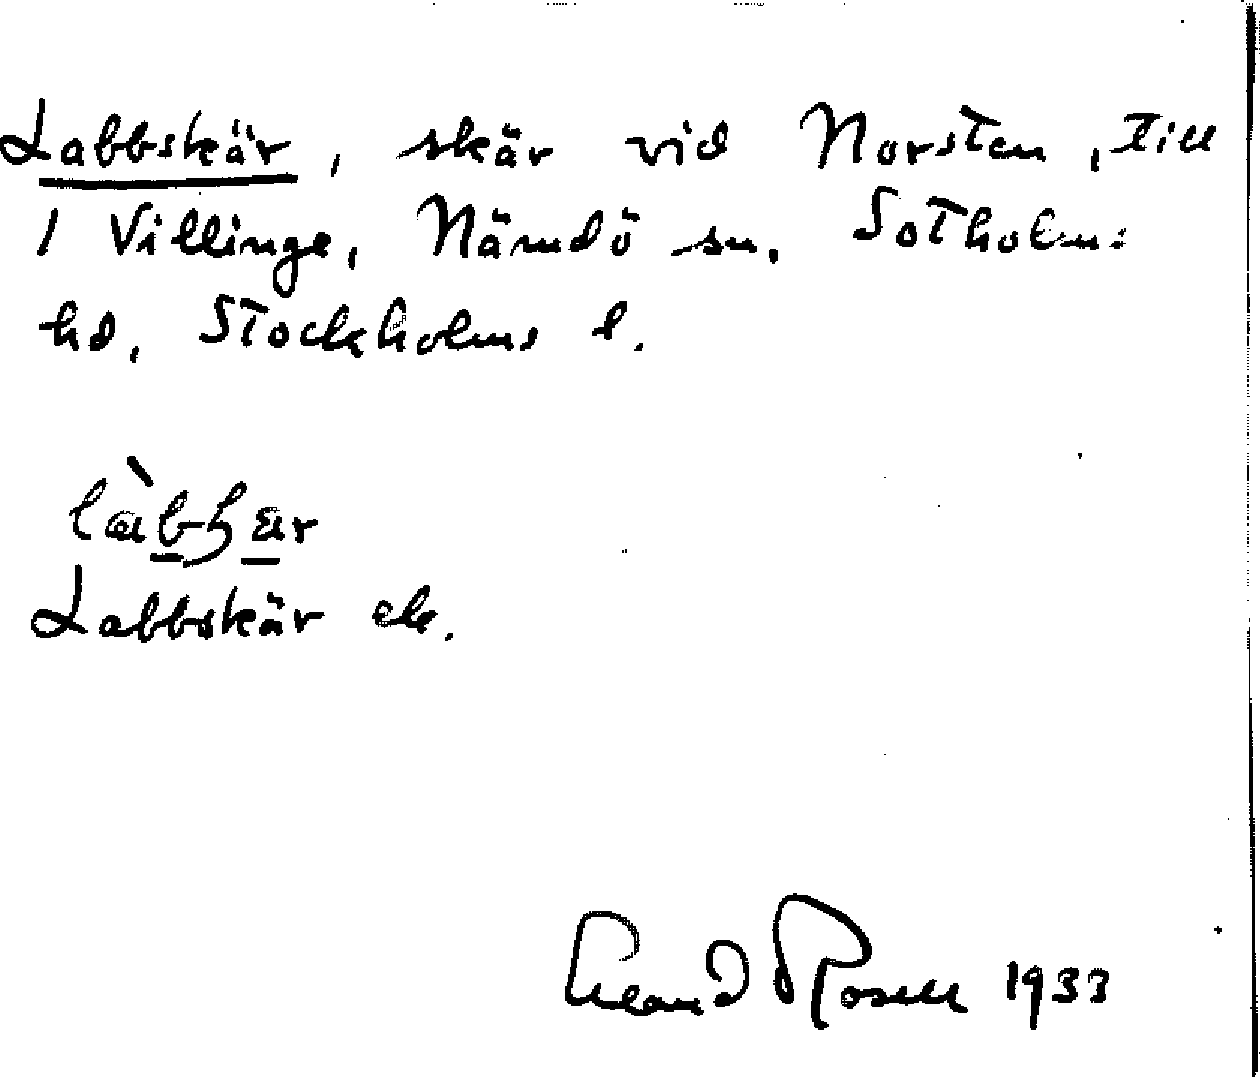 Labbskär, skär vid Norsten, till
/ Villinge, Nämdö sn, Sotholms
hd, Stockholms l.
Labbskär ek.
Rosell 1933